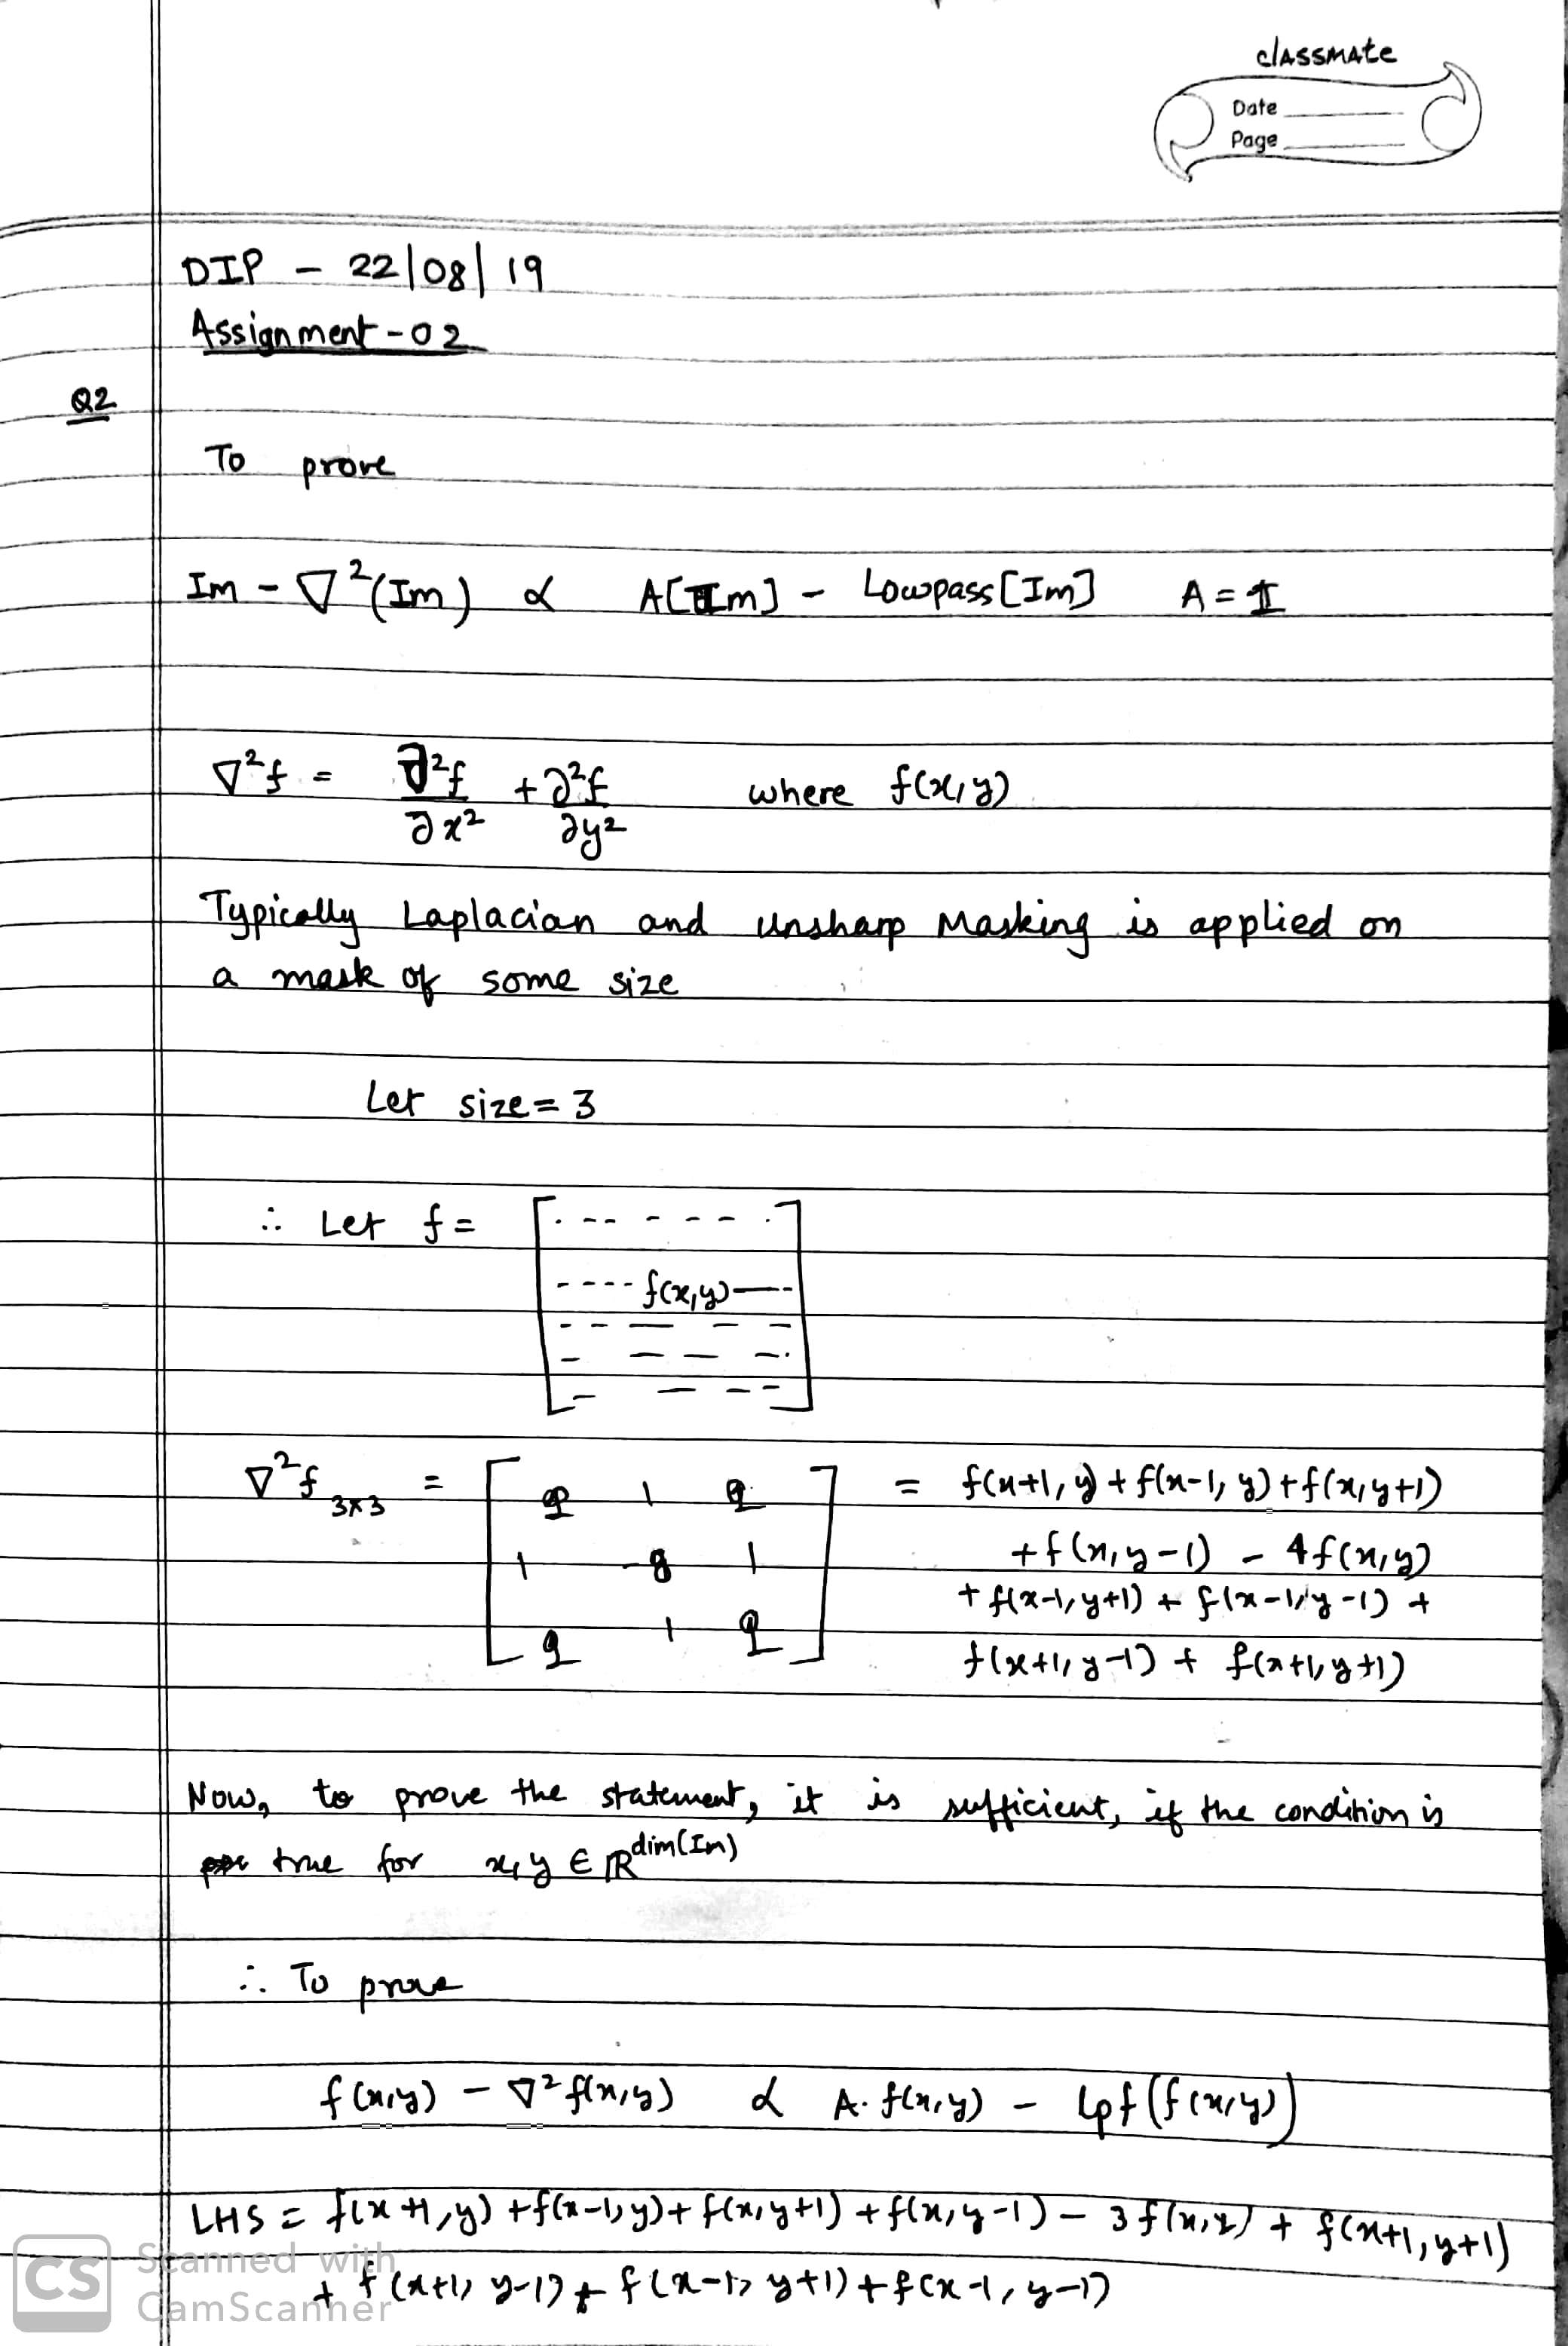 classmate
Date
Page
DIP - 22/08/19
Assignment - 02
Q2
To prove
Im - ∇²(Im) ∝ A[Im] - Lowpass[Im] A = 1
∇²f = ∂²f/∂x² + ∂²f/∂y² where f(x,y)
Typically Laplacian and unsharp Masking is applied on
a mask of some size
Let size = 3
∴ Let f = [ . -- - - - . ]
---- f(x,y) ----
∇²f 3x3 = [ 1 1 1 = f(x+1, y) + f(x-1, y) + f(x,y+1)
1 -8 1 + f(x,y-1) - 4f(x,y)
+ f(x-1,y+1) + f(x-1,y-1) +
1 1 1 ] f(x+1,y-1) + f(x+1,y+1)
Now, to prove the statement, it is sufficient, if the condition is
true for x,y ∈ ℝ^dim(Im)
∴ To prove
f(x,y) - ∇²f(x,y) ∝ A. f(x,y) - lpf(f(x,y))
LHS = f(x+1,y) + f(x-1,y) + f(x,y+1) + f(x,y-1) - 3f(x,y) + f(x+1,y+1)
+ f(x+1, y-1) + f(x-1, y+1) + f(x-1, y-1)
CS Scanned with
CamScanner